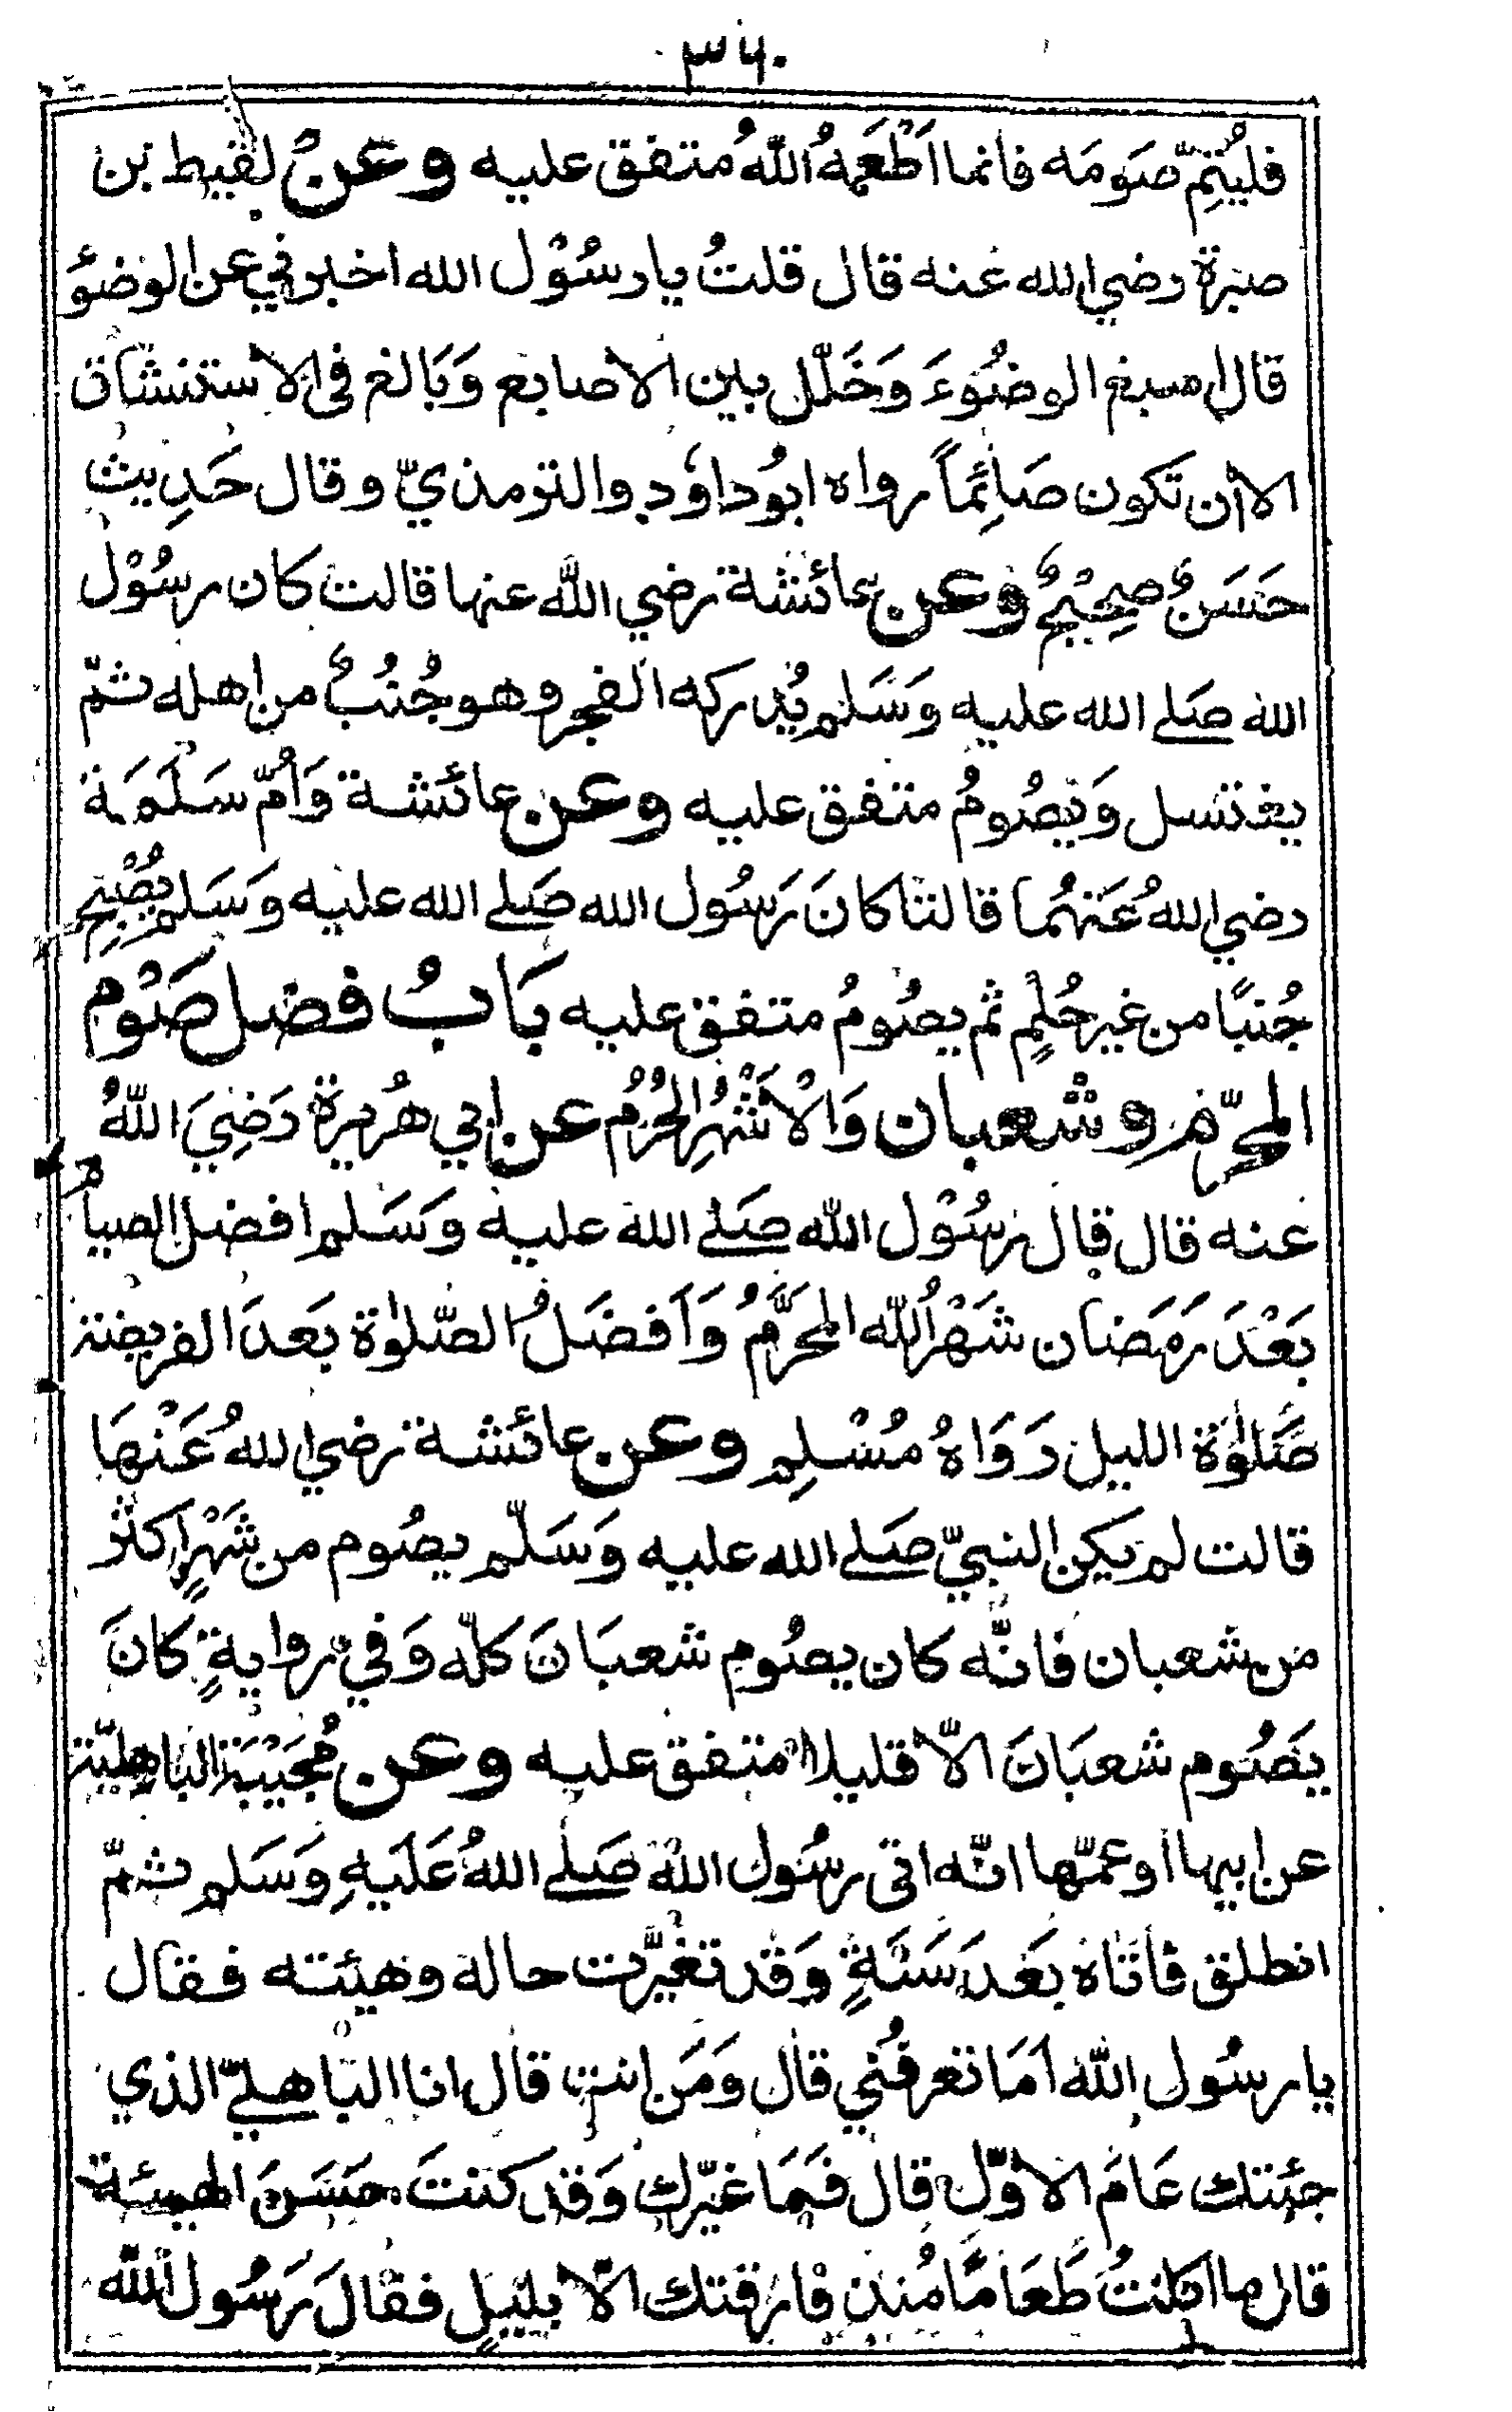 ۳۶۰
فليُتِمّ صَومَه فانما اَطْعَمَهُ اللّٰهُ متفق عليه وعن لقيط بن
صبرة رضي الله عنه قال قلتُ يارسُوْل الله اخبرني عن الوضوٴ
قال اسبغ الوضُوءَ وَخَلّل بين الاصابع وَبَالغ فى الاستنشاق
الا ان تكون صَائِمًا رواه ابوُ داوٗد والترمذيّ وقال حَدِيث
حَسَنٌ صحِيْحٌ وعن عائشة رضي اللّٰه عنها قالت كان رسُوْل
الله صَلے الله عليه وَسَلم يُدركه الفجر وهو جُنُبٌ من اهله ثمّ
يغتسل وَيصُومُ متفق عليه وعن عائشة وَاُمّ سَلَمَة
رضي اللهُ عَنهُما قالتا كانَ رَسُول الله صَلے الله عليه وَسَلم يُصْبِح
جُنبًا من غير حُلمٍ ثم يصُومُ متفق عليه بَابُ فضل صَوْم
المحرّم وشعبان وَالْاَشْهُرِ الْحُرُمُ عن ابي هُريرة رَضِيَ اللّٰهُ
عنه قال قال رسُوْل اللّٰه صَلے الله عليه وَسَلم افضل الصيام
بَعْدَ رَمَضان شَهْرُ اللّٰه المحَرَّمُ وَاَفضَلُ الصّلٰوة بَعدَ الفريضة
صَلٰوة الليل رَوَاهُ مُسْلِم وعن عائشة رضي اللهُ عَنْهَا
قالت لم يكن النبيّ صَلے الله عليه وَسَلّم يصُوم من شَهْرٍ اكثر
من شعبان فانّه كان يصُوم شعبَانَ كلّه وَفي روايةٍ كانَ
يَصُوم شعبَانَ الاّ قليلا متفق عليه وعن مُجَيْبَة البَاهِليّة
عن ابيها اوعمّها انّه اتى رسُول الله صَلے اللهُ عَلَيهِ وَسَلم ثمّ
انطلق فاتاه بَعدَ سَنَةٍ وَقد تغيّرت حاله وهيئته فقال
يارسُول اللّٰه اَمَا تعرفُني قال وَمَن انت قال انا الباهليّ الذي
جئتك عَامَ الاوّل قال فَمَا غيّرك وَقد كنتَ حَسَنَ الهيئة
قال ما اكلتُ طَعَامًا مُنذ فارقتك الاّ بليلٍ فقالَ رَسُول اللّٰه